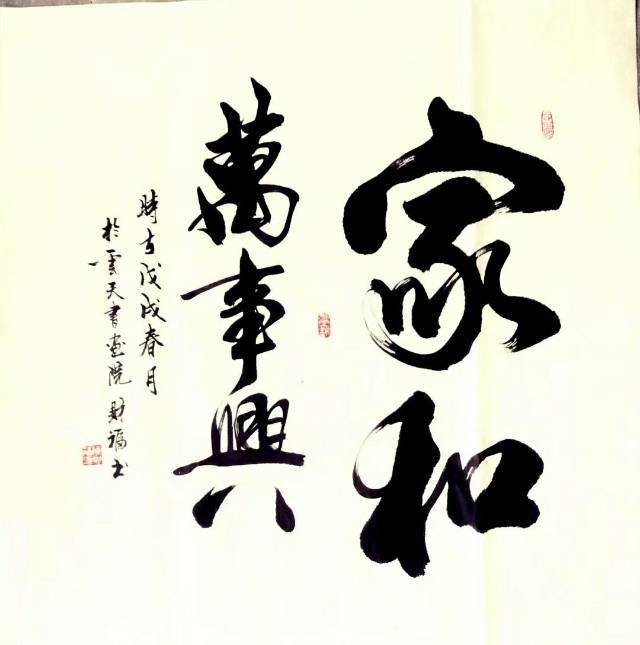 家和
萬事興
時在戊戌春月
於雲天書畫院財福书